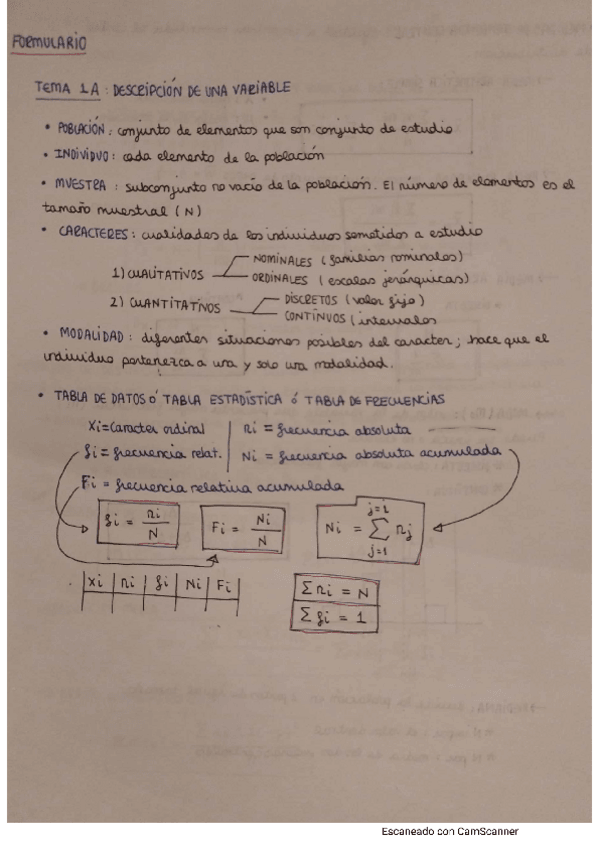 FORMULARIO
TEMA 1A : DESCRIPCIÓN DE UNA VARIABLE
• POBLACIÓN : conjunto de elementos que son conjunto de estudio
• INDIVIDUO : cada elemento de la población
• MUESTRA : subconjunto no vacío de la población. El número de elementos es el
tamaño muestral (N)
• CARACTERES : cualidades de los individuos sometidos a estudio
1) CUALITATIVOS
NOMINALES (familias nominales)
ORDINALES (escalas jerárquicas)
2) CUANTITATIVOS
DISCRETOS (valor fijo)
CONTÍNVOS (intervalos
• MODALIDAD : diferentes situaciones posibles del caracter ; hace que el
individuo pertenezca a una y solo una modalidad.
• TABLA DE DATOS ó TABLA ESTADÍSTICA ó TABLA DE FRECUENCIAS
Xi = Caracter ordinal | ni = frecuencia absoluta
fi = frecuencia relat. | Ni = frecuencia absoluta acumulada
Fi = frecuencia relativa acumulada
fi = ni / N
Fi = Ni / N
Ni = ∑ nj
j=i
j=1
| Xi | ni | fi | Ni | Fi |
∑ ni = N
∑ fi = 1
Escaneado con CamScanner